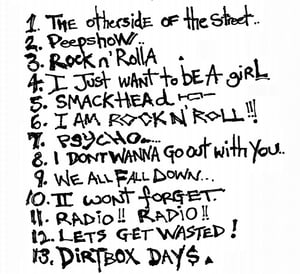 1. THE otherside OF the Street..
2. Peepshow..
3. Rock n' Rolla
4. I Just WANT to bE A giRL
5. SMACKHEAd
6. I AM ROCK N' ROLL!!
7. PSYCHO....
8. I DONT WANNA GO out with You..
9. WE ALL FALL DOWN...
10. IT WONT FORGET.
11. RADIO!! RADIO!!
12. LETS GET WASTED!
13. DiRTBOX DAY$.